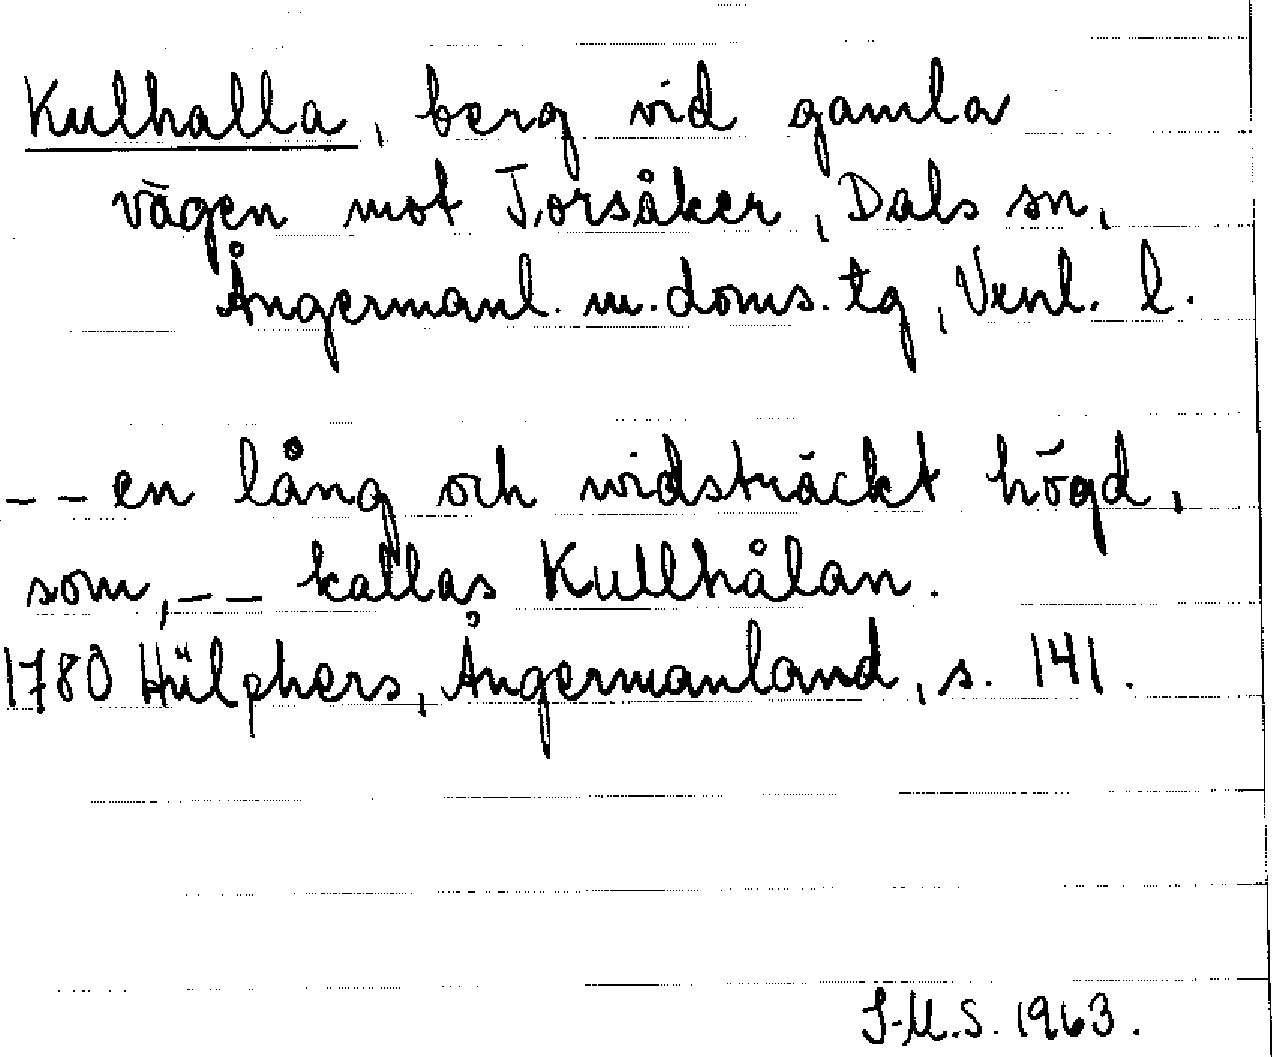 Kulhalla, berg vid gamla
vägen mot Torsåker, Dals sn,
Ångermanl. m. doms. tg, Vrnl. l.
– – en lång och vidsträckt högd,
som, – – kallas Kullhålan.
1780 Hülphers, Ångermanland, s. 141.
I-M.S. 1963.